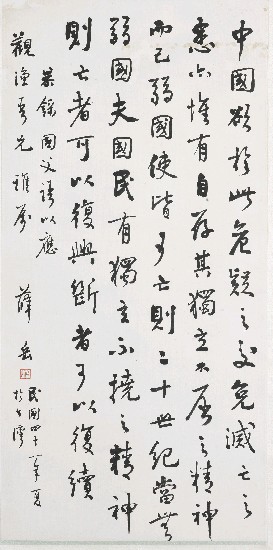 中國欲於此危疑之交免滅亡之
患亦惟有自存其獨立不屈之精神
而已弱國使皆可亡則二十世紀當無
弱國夫國民有獨立不撓之精神
則亡者可以復興斷者可以復續
恭錄國父語以應
觀漁吾兄雅屬
薛岳
民國四十八年夏
於台灣